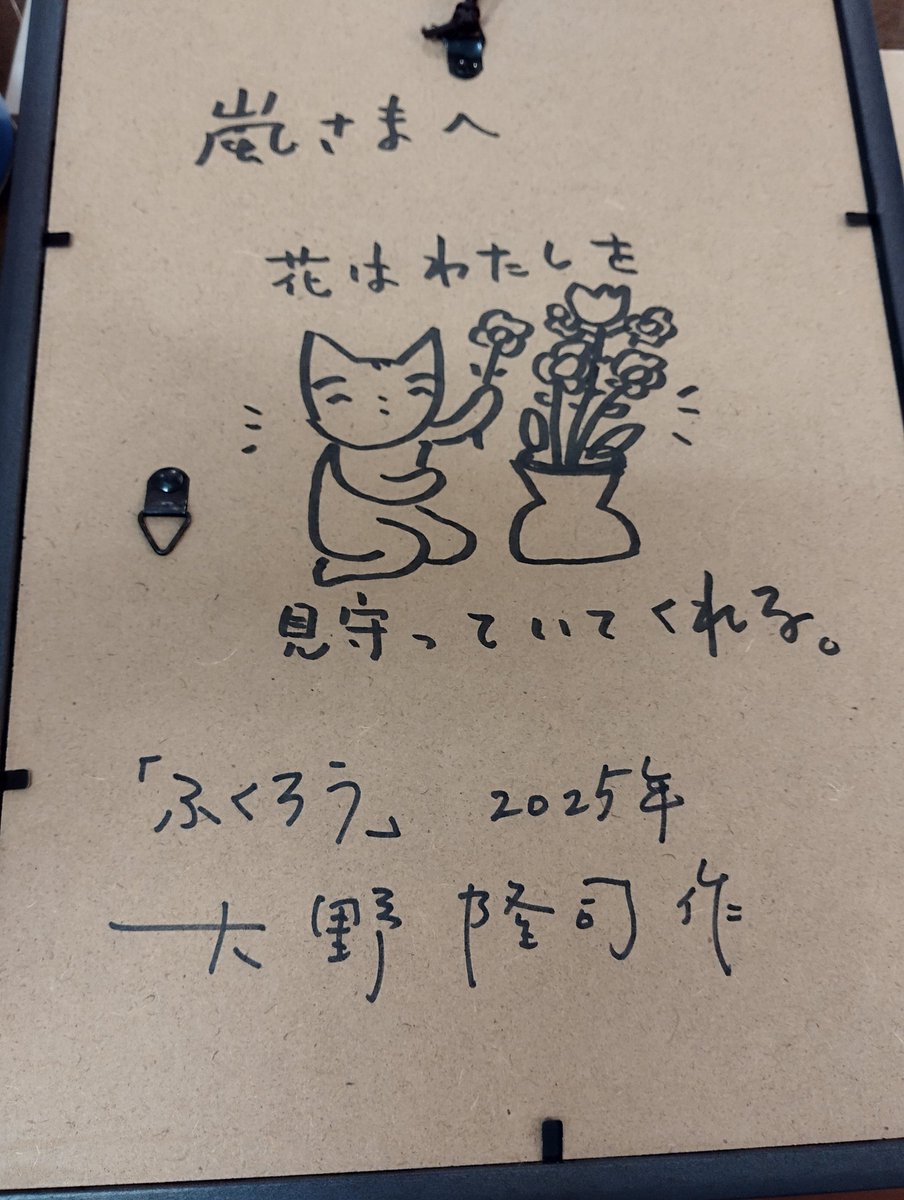 嵐さまへ
花はわたしを
見守っていてくれる。
「ふくろう」 2025年
大野隆司作